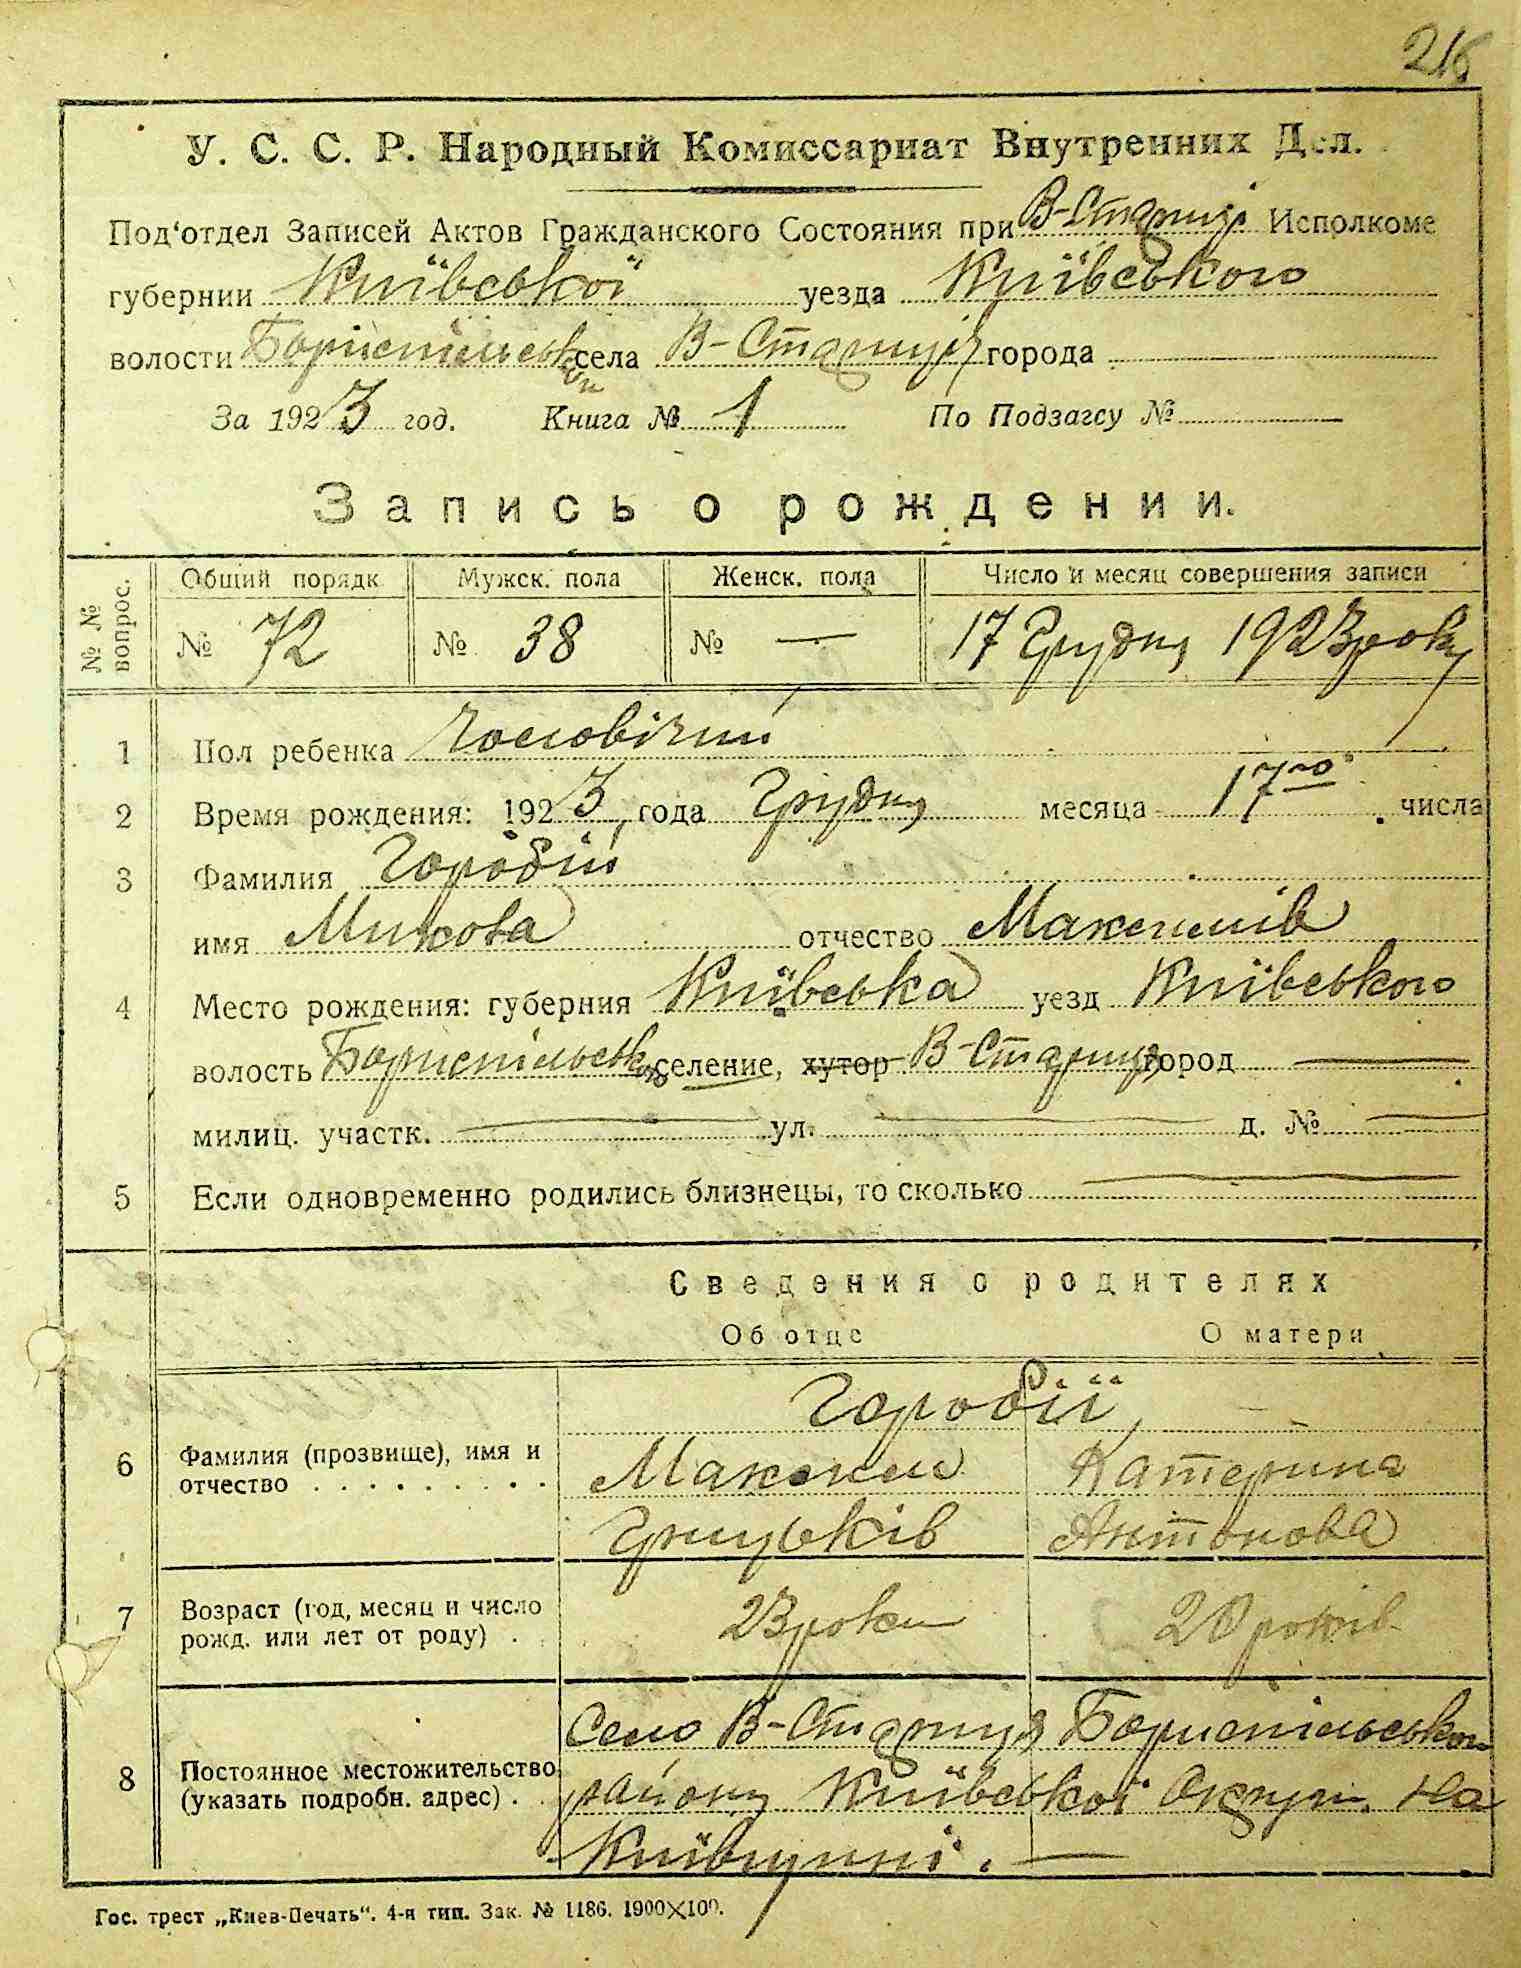 216
У. С. С. Р. Народный Комиссариат Внутренних Дел.
Под'отдел Записей Актов Гражданского Состояния при В-Стариці Исполкоме
губернии Київської уезда Київського
волости Бориспільської села В-Стариці города
За 1923 год. Книга № 1 По Подзагсу №
Запись о рождении.
№ № вопрос. Общий порядк Мужск. пола Женск. пола Число и месяц совершения записи
№ 72 № 38 № — 17 Грудня 1923 року
1 Пол ребенка Чоловічий
2 Время рождения: 1923 года Грудня месяца 17го числа
3 Фамилия Горобій
имя Микола отчество Максимів
4 Место рождения: губерния Київська уезд Київського
волость Бориспільсько селение, хутор В-Стариця город —
милиц. участк. — ул. — д. № —
5 Если одновременно родились близнецы, то сколько —
Сведения о родителях
Об отце О матери
Горобії
6 Фамилия (прозвище), имя и отчество Максим Катерина
Грицьків Антонова
7 Возраст (год, месяц и число рожд. или лет от роду) 23 роки 20 років
8 Постоянное местожительство (указать подробн. адрес) Село В-Стариця Бориспільського
району Київської Округи на
Київщині. —
Гос. трест „Киев-Печать“. 4-я тип. Зак. № 1186. 1900×100.